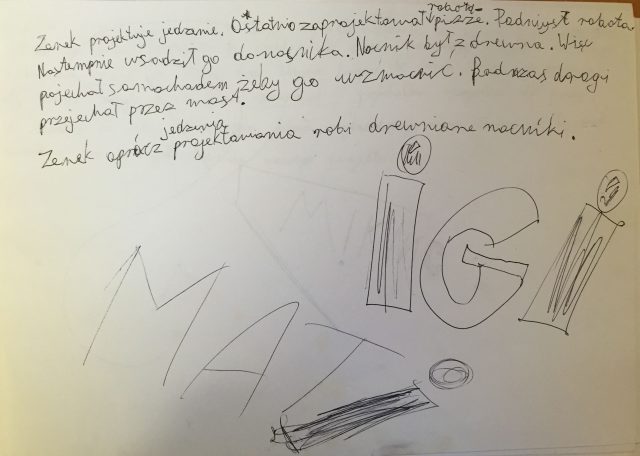 Zenek projektuje jedzenie. Ostatnio zaprojektował robota-pizze. Podniósł robota.
Następnie wsadził go do nocnika. Nocnik był z drewna. Więc
pojechał samochodem żeby go wzmocnić. Podczas drogi
przejechał przez most.
Zenek oprócz projektowania jedzenia robi drewniane nocniki.
iGi
MATi